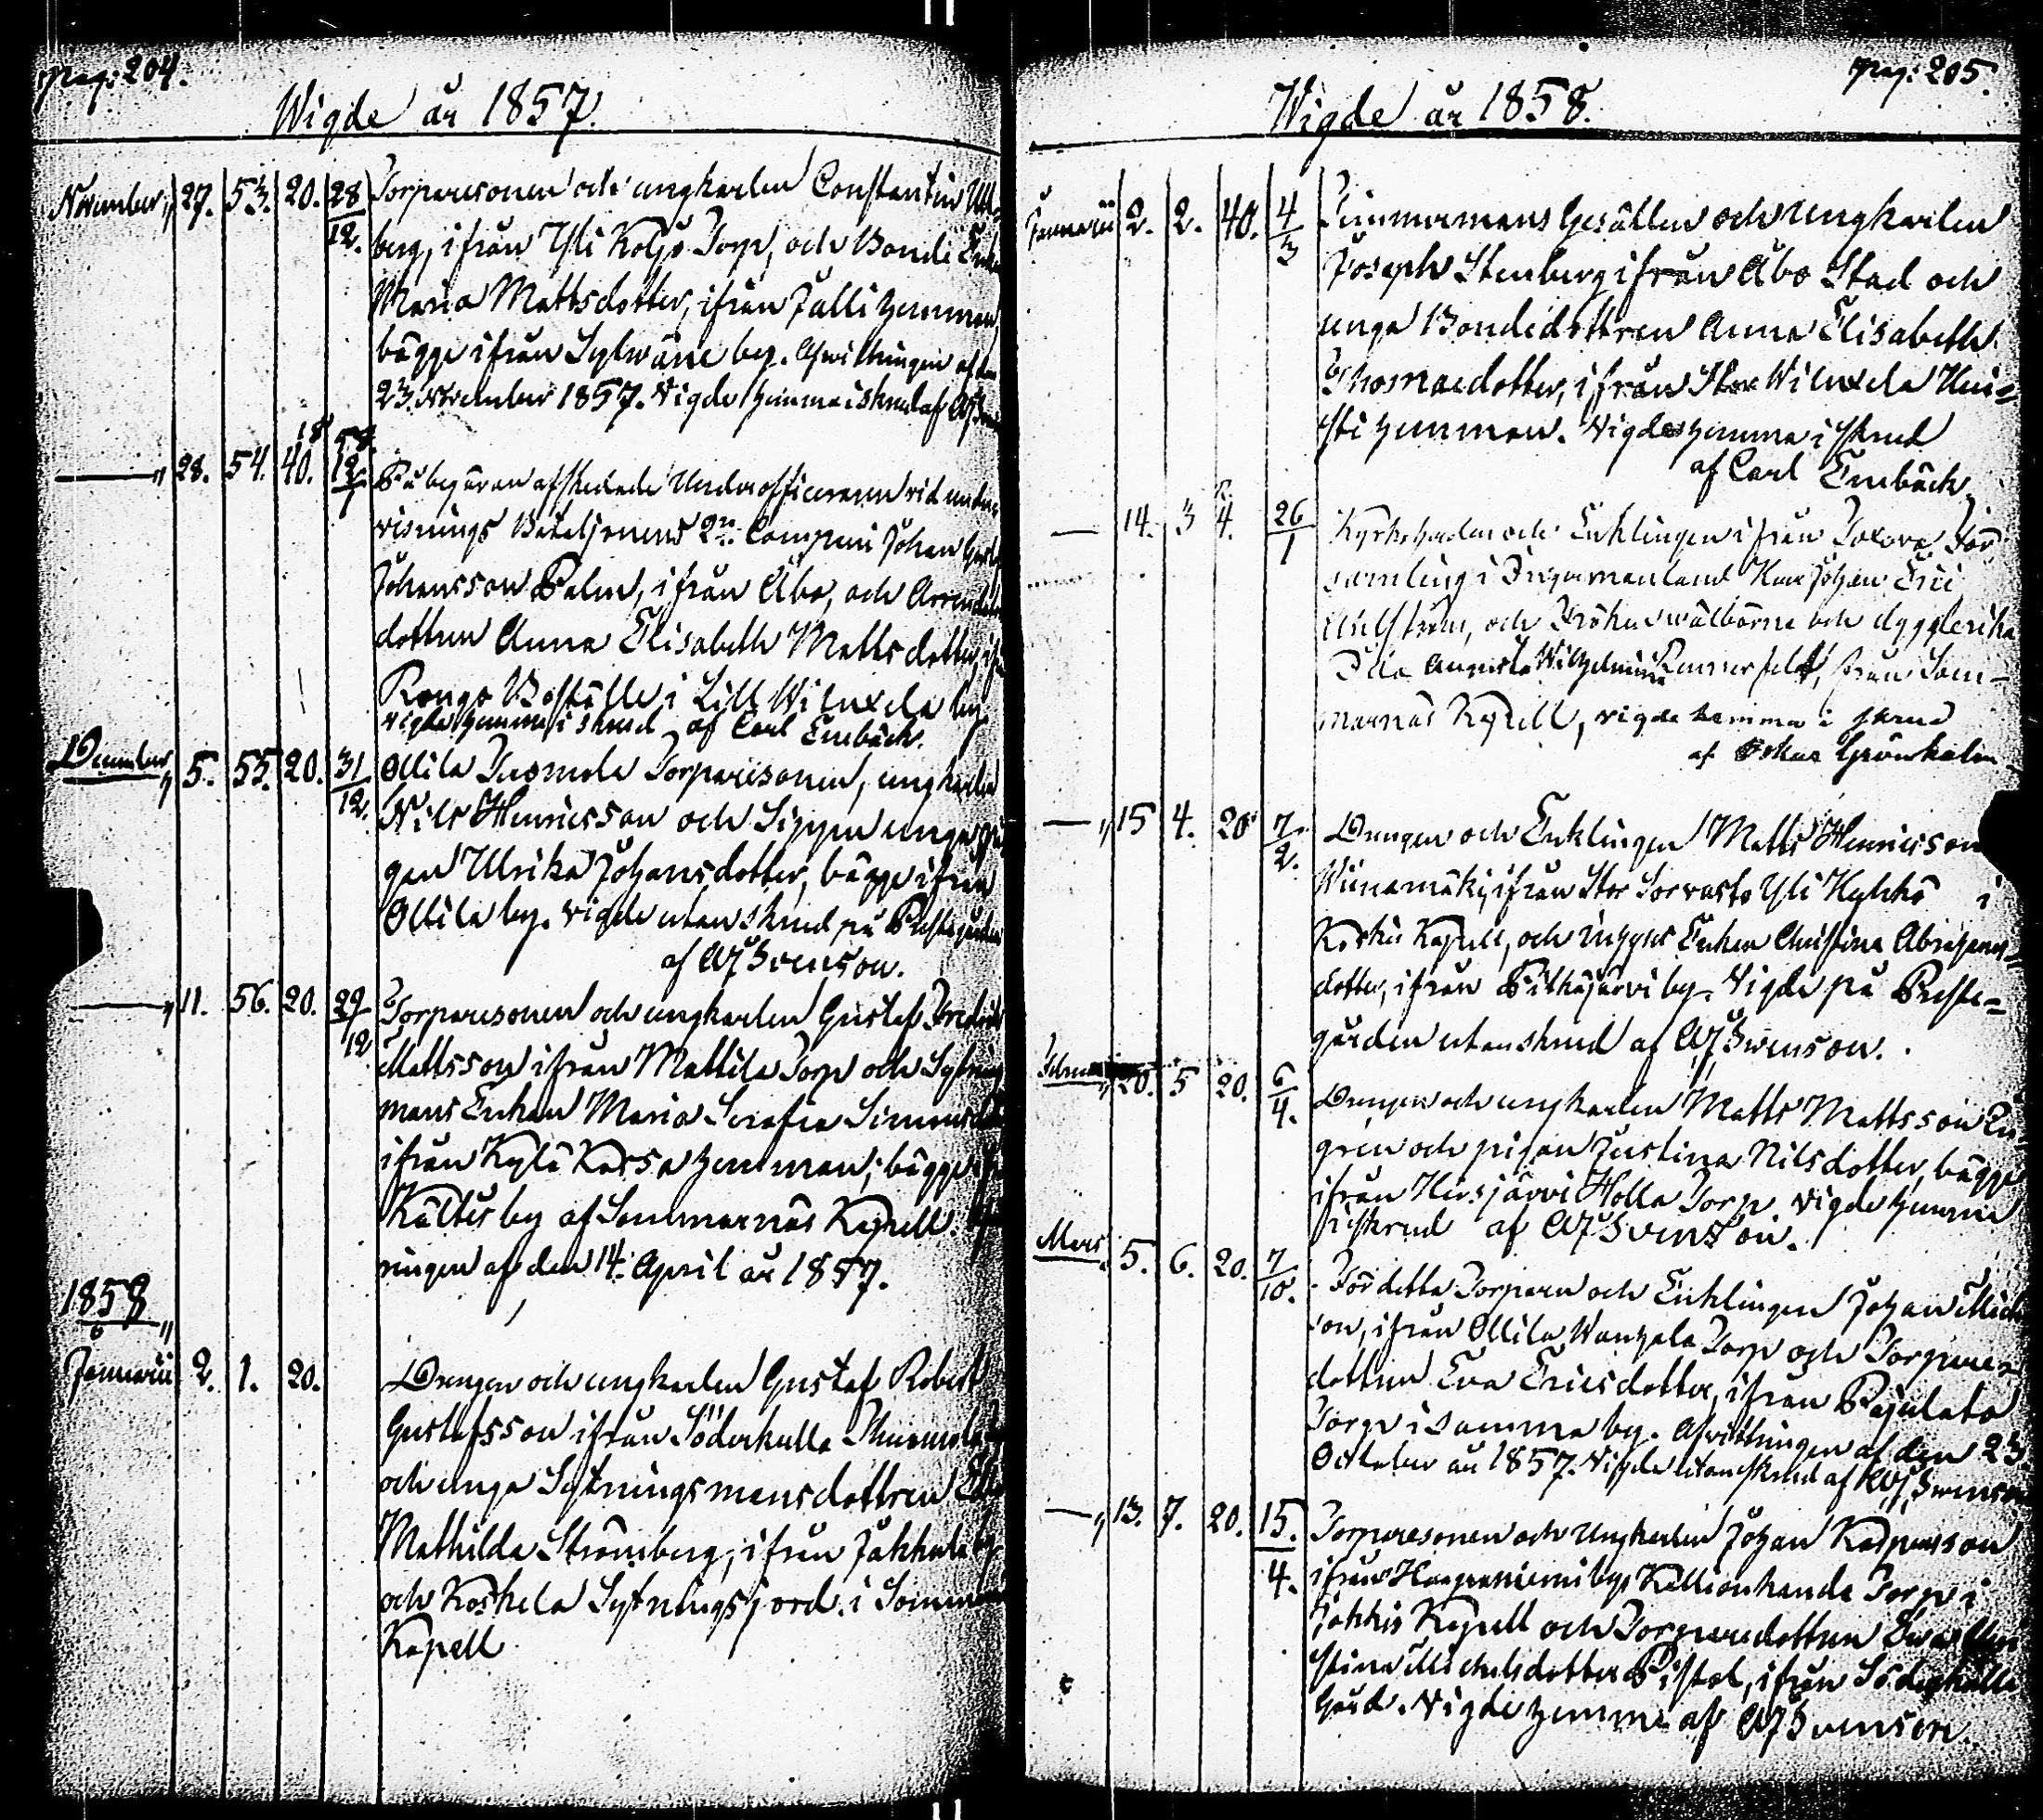 pag: 204.
Wigde år 1857.
November „ 27. 53. 20. 28/12. Torparesonen och ungkarlen Constantin
berg, ifrån Yli Koljo Torp, och Bonde Enkan
Maria Mattsdotter, ifrån Jalli hemman,
bägge ifrån Sylwäne by. Afwittringen af den
23. November 1857. Vigde hemma i skrud af
—„ 28. 54. 40. 18 58. 12/1 På begäran afskedade Underofficeraren vid under-
visnings Bataljonens 2n. Compani Johan
Johansson Palm, ifrån Åbo, och
dottren Anna Elisabeth Mattsdotter,
Rongo Boställe i Lill Wiluxela by
vigde hemma i skrud af Carl Enebäck.
December „ 5. 55. 20. 31/12. Ollila Tuomola Torparesonen, ungkarlen
Nils Henricsson och Sippen unga pi-
gan Ulrika Johansdotter, bägge ifrån
Ollila by. vigde utan skrud på Prestegården
af AJ Svenson.
—„ 11. 56. 20. 29/12 Torparesonen och ungkarlen Gustaf Fredrik
Mattsson ifrån Mattila Torp och Sytnings
mans Enkan Maria Serafia Simonsdotter
ifrån Kylä Kossa hemman; bägge
Kältis by af Sommarnäs Kapell.
ringen af den 14. April år 1857.
1858
Januarii 2. 1. 20. Drengen och ungkarlen Gustaf Robert
Gustafsson ifrån Söderkulla
och unga Sytningsmansdottren
Mathilda Strömberg, ifrån Jakkula by
och Koskela Sytningsjord i
Kapell
pag: 205.
Wigde år 1858.
Januarii 2. 2. 40. 4/3 Timmermans Gesällen och Ungkarlen
Joseph Stenberg ifrån Åbo Stad och
unga Bondedottren Anna Elisabeth
Thomaedotter, ifrån Stor Wiluxela
hemman. Vigde hemma i skrud
af Carl Enebäck
— 14. 3 4. 26/1 Kyrkoherden och Enklingen ifrån För
samling i Ingermanland Herr Johan
och Fröken wälborna och dygderika
Augusta Wilhelmina från Som-
marnäs Kapell, vigde hemma i skrud
af Oskar Grönholm
—„ 15 4. 20 7/2. Drengen och Enklingen Matts Henricsson
Wiinamäki, ifrån Stor Sorvasto Yli Kyhkö i
Koskis Kapell, och Enkan Christina Abrahams-
dotter, ifrån Pitkäjärvi by. Vigde på Preste-
gården utan skrud af AJ Svenson.
20. 5 20. 6/4. Drengen och ungkarlen Matts Mattsson
gren och pigan Justina Nilsdotter, bägge
ifrån Hirsjärvi Holla Torp. Vigde hemma
i skrud af AJ Svenson.
Mars 5. 6. 20. 7/10. Fördetta Torparen och Enklingen Johan
son, ifrån Ollila Wanhala Torp och Torpare-
dottren Eva Ericsdotter, ifrån Pajulato
Torp i samma by. Afvittringen af den 23.
October år 1857. Vigde utan skrud af AJ Svenson
—„ 13. 7. 20. 15./4. Torparesonen och Ungkarlen Johan Kaspersson
ifrån Haapaniemi by Kallionkanda Torp i
Jokkis Kapell och Torparedottren Eva
stina Michelsdotter Pistol, ifrån Söderkulla
Gård. Vigde hemma af AJ Svenson.